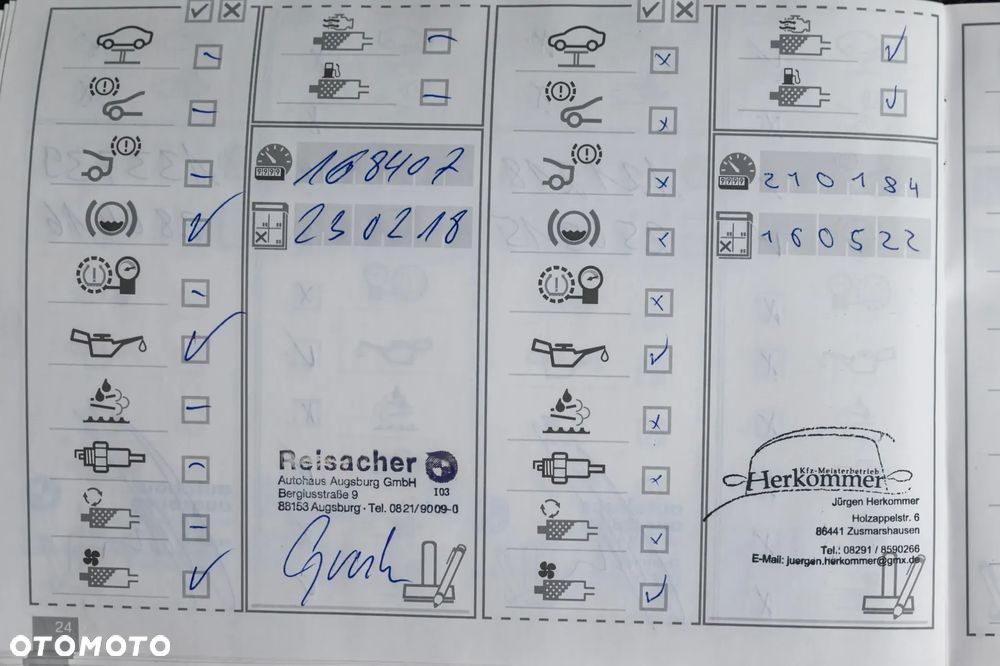 168407
230218
Reisacher
Autohaus Augsburg GmbH
Bergiusstraße 9 103
86153 Augsburg · Tel. 0821/9009-0
210184
160522
Kfz-Meisterbetrieb
Herkommer
Jürgen Herkommer
Holzappelstr. 6
86441 Zusmarshausen
Tel.: 08291 / 8590266
E-Mail: juergen.herkommer@gmx.de
24
OTOMOTO